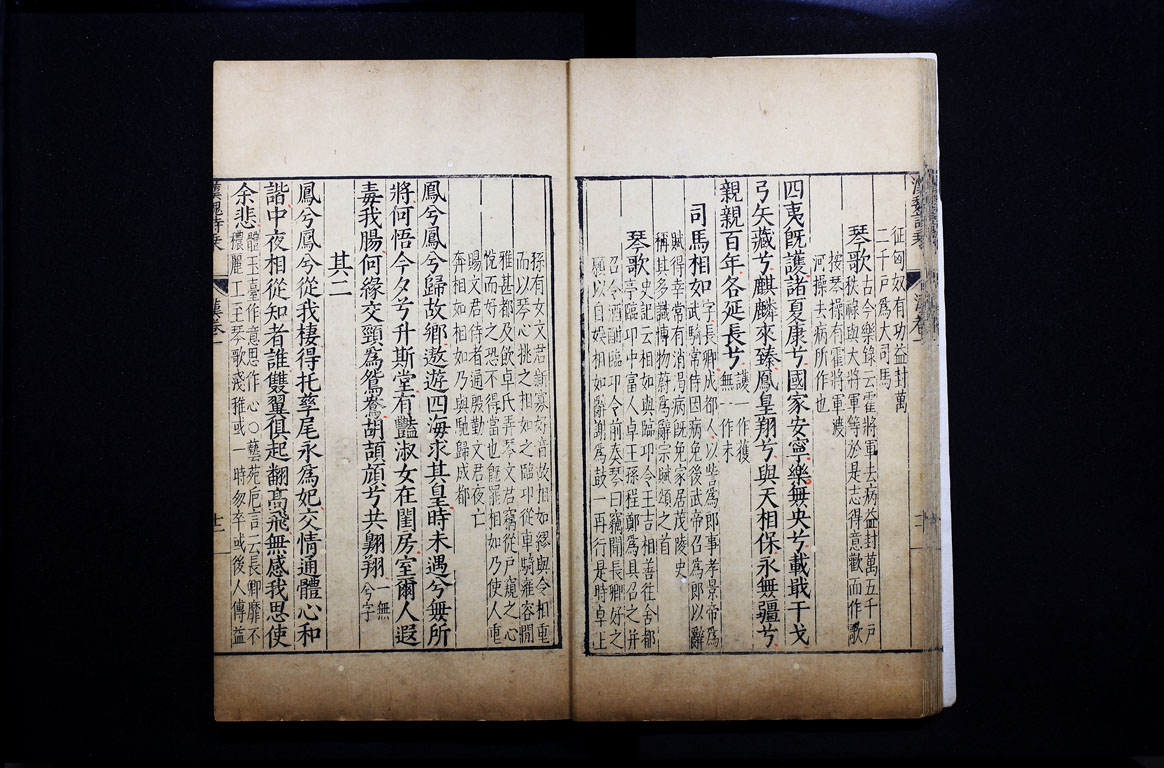 征匈奴有功益封萬
二千戶為大司馬
琴歌 古今樂錄云霍將軍去病益封萬五千戶
秩祿與大將軍等於是志得意歡而作歌
按琴操有霍將軍渡
河操去病所作也
四夷既護諸夏康兮國家安寧樂無央兮載戢干戈
弓矢藏兮麒麟來臻鳳皇翔兮與天相保永無疆兮
親親百年各延長兮 護一作獲
無一作未
司馬相如 字長卿成都人以訾為郎事孝景帝為
武騎常侍因病免後武帝召為郎以辭
賦得幸常有消渴病既免家居茂陵史
稱其多識博物蔚為辭宗賦頌之首
琴歌 史記云相如與臨卭令王吉相善往舍都
亭臨卭中富人卓王孫程鄭為具召之并
召令酒酣臨卭令前奏琴曰竊聞長卿好之
願以自娛相如辭謝為鼓一再行是時卓王
孫有女文君新寡好音故相如繆與令相重
而以琴心挑之相如之臨卭從車騎雍容閒
雅甚都及飲卓氏弄琴文君竊從戶窺之心
悅而好之恐不得當也既罷相如乃使人重
賜文君侍者通殷勤文君夜亡
奔相如相如乃與馳歸成都
鳳兮鳳兮歸故鄉遨遊四海求其皇時未遇兮無所
將何悟今夕兮升斯堂有豔淑女在閨房室爾人遐
毒我腸何緣交頸為鴛鴦胡頡頏兮共翱翔 一無
兮字
其二
鳳兮鳳兮從我棲得托孳尾永為妃交情通體心和
諧中夜相從知者誰雙翼俱起翻高飛無感我思使
余悲 體玉臺作意思作心○藝苑卮言云長卿靡不
穠麗工王琴歌淺稚或一時匆卒或後人傳益
漢魏詩乘 漢卷一 十二